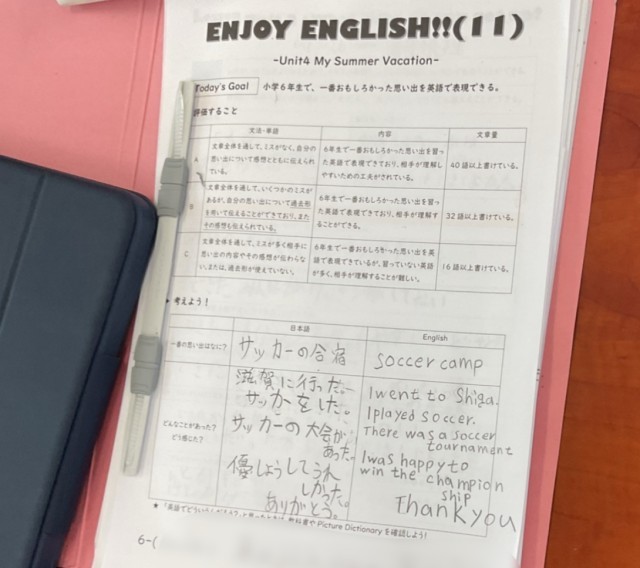 ENJOY ENGLISH!!(11)
-Unit4 My Summer Vacation-
Today's Goal 小学6年生で、一番おもしろかった思い出を英語で表現できる。
評価すること
文法・単語 内容 文章量
A
文章全体を通して、ミスがなく、自分の思い出について感想とともに伝えられている。
6年生で一番おもしろかった思い出を習った英語で表現できており、相手が理解しやすいための工夫がされている。
40語以上書けている。
B
文章全体を通して、いくつかのミスがあるが、自分の思い出について過去形を用いて伝えることができており、またその感想も伝えられている。
6年生で一番おもしろかった思い出を習った英語で表現できており、相手が理解することができる。
32語以上書けている。
C
文章全体を通して、ミスが多く相手に思い出の内容やその感想が伝わらない。または、過去形が使えていない。
6年生で一番おもしろかった思い出を英語で表現できているが、習っていない英語が多く、相手が理解することが難しい。
16語以上書けている。
考えよう!
日本語 English
一番の思い出はなに?
サッカーの合宿
soccer camp
どんなことがあった?
どう感じた?
滋賀に行った。
サッカーをした。
サッカーの大会が
あった。
優しょうしてうれ
しかった。
ありがとう。
I went to Shiga.
I played soccer.
There was a soccer
tournament
I was happy to
win the champion
ship
Thank you
★「英語でどういう 教科書や Picture Dictionary を確認しよう!
6-(